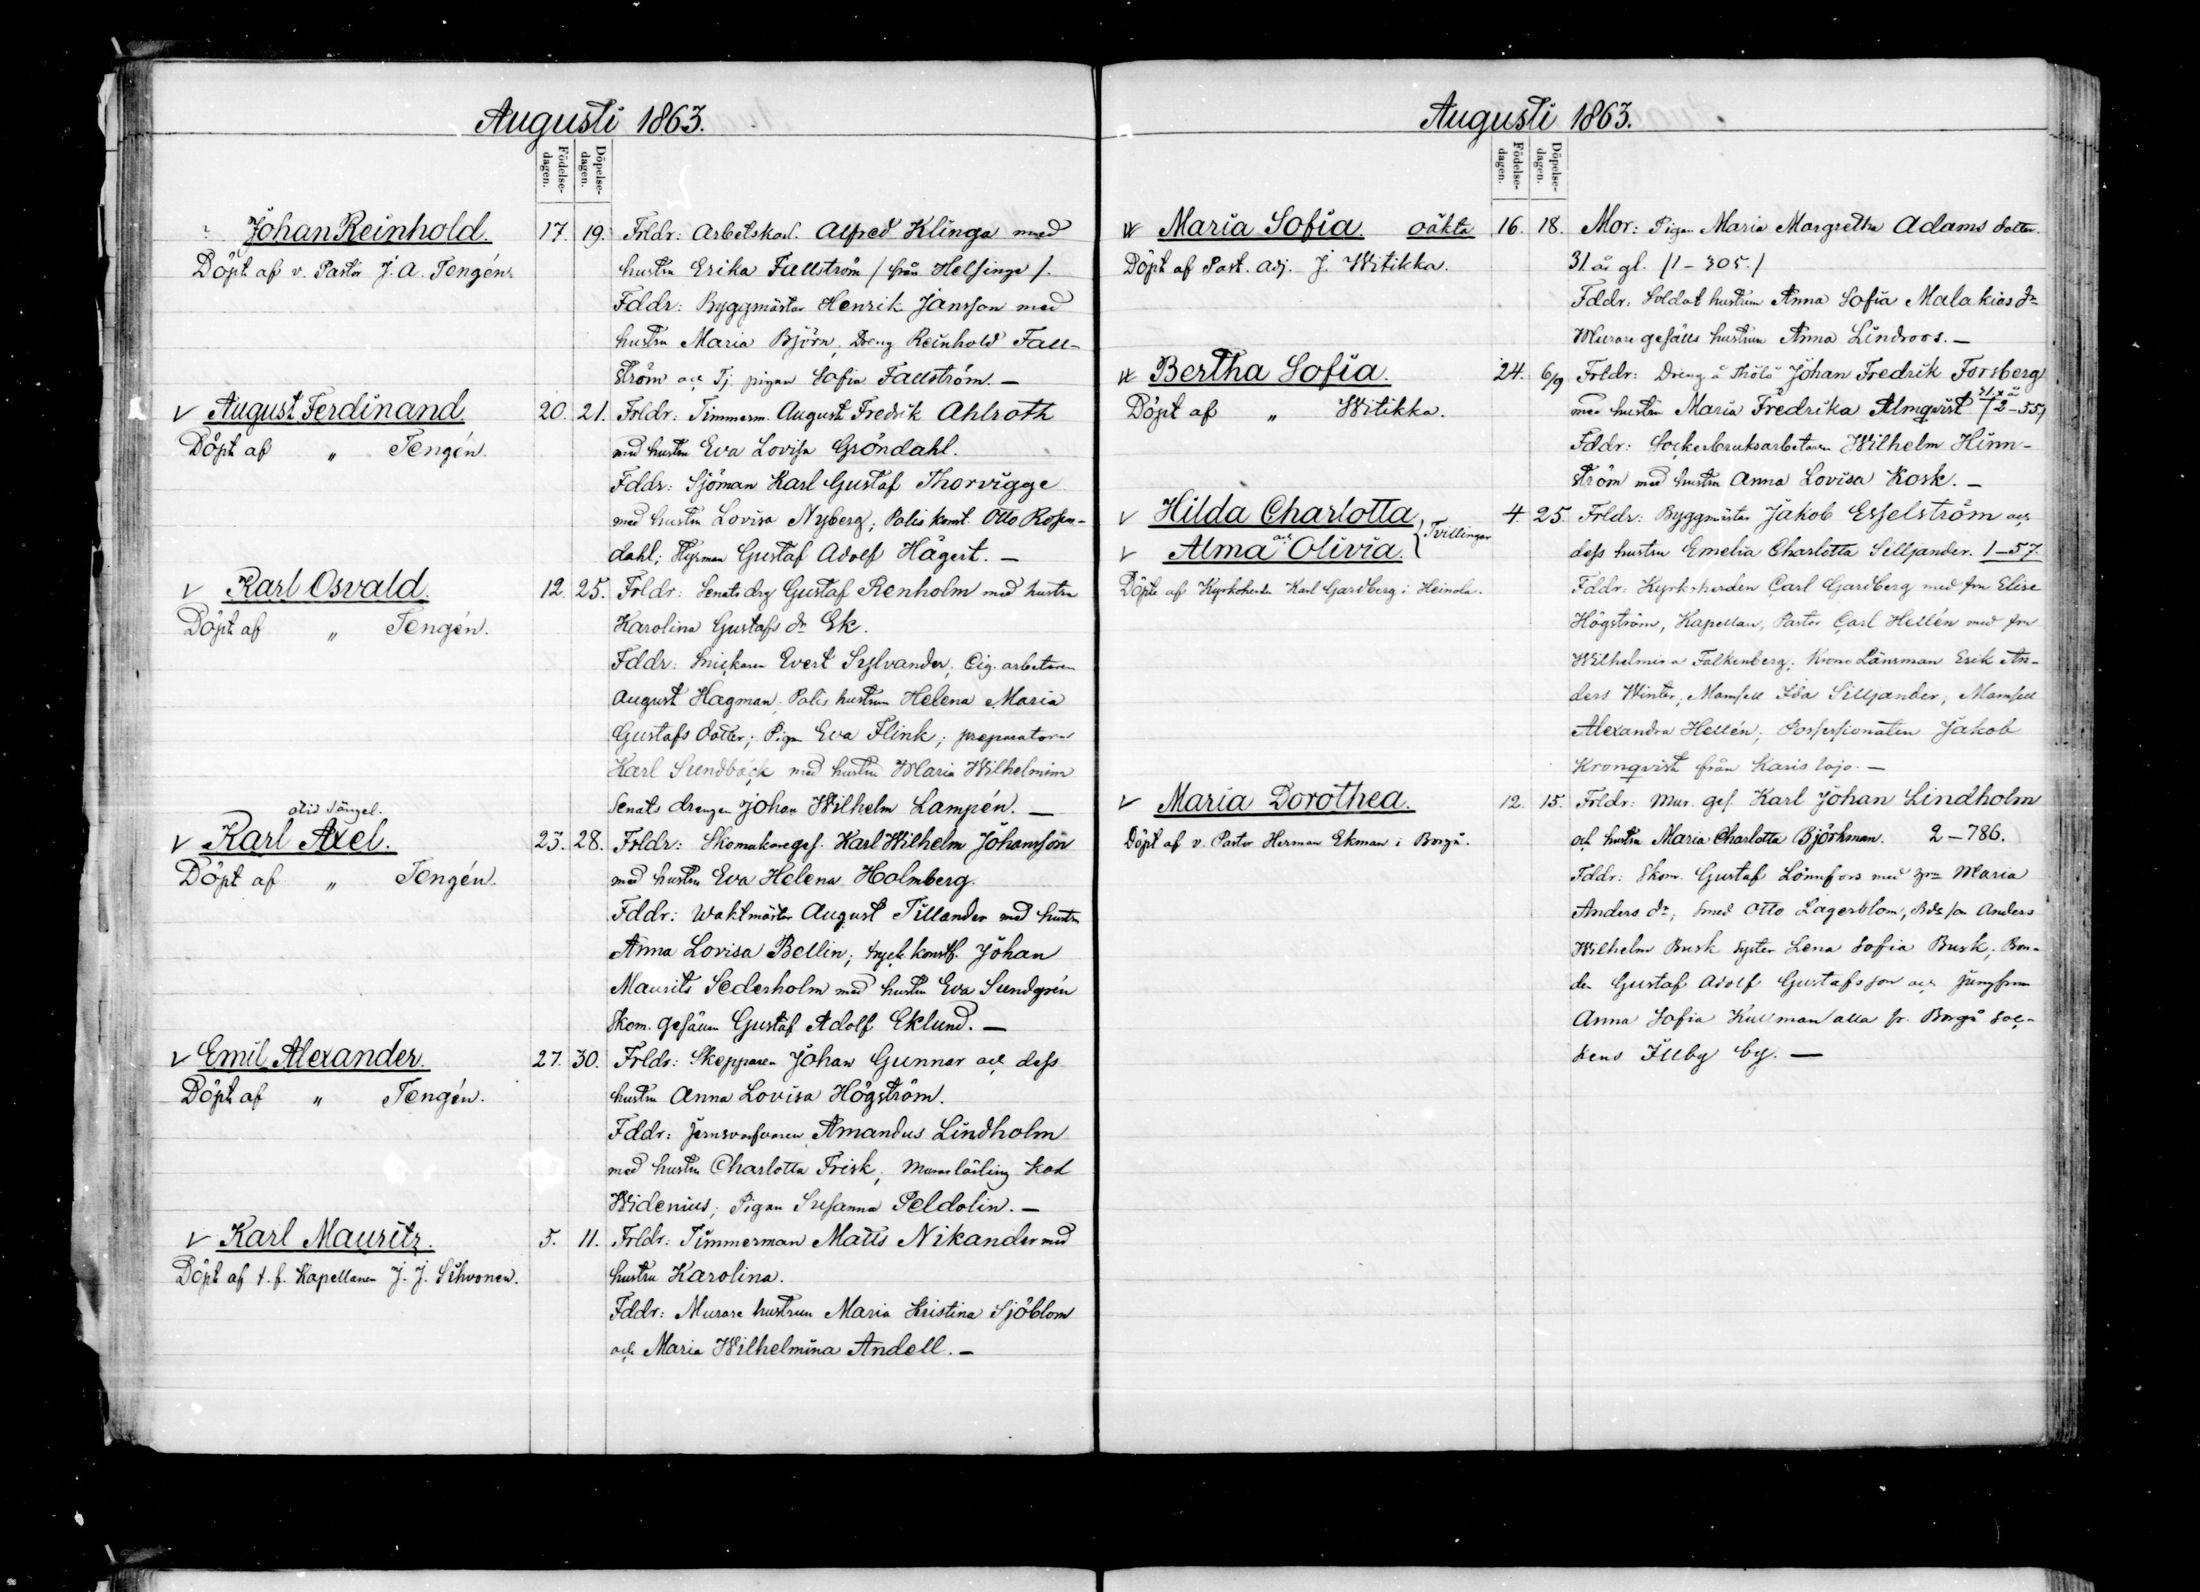 Augusti 1863.
Födelse-dagen.
Döpelse-dagen.
Johan Reinhold. 17. 19. Frldr: Arbetskarl. Alfred Klinga med
Döpt af v. Pastor J. A. Tengén. hustru Erika Fallström /från Helsinge/.
Fddr: Byggmästar Henrik Jansson med
hustru Maria Björn, Dreng Reinhold Fall-
ström och Tj. pigan Sofia Fallström. —
V August Ferdinand 20. 21. Frldr: Timmerm. August Fredrik Ahlroth
Döpt af „ Tengén. med hustru Eva Lovisa Gröndahl.
Fddr: Sjöman Karl Gustaf Thorvigge
med hustru Lovisa Nyberg; Polis konst. Otto Rosen-
dahl; Gustaf Adolf Hägert. —
V Karl Osvald. 12. 25. Frldr: Senats drg Gustaf Renholm med hustru
Döpt af „ Tengén. Karolina Gustafs dr Ek.
Fddr: Snickaren Evert Sylvander, Cig. arbetaren
August Hagman, Polis hustrun Helena Maria
Gustafs dotter; Pigan Eva Flink; preparatorn
Karl Sundbäck med hustru Maria Wilhelmina
Senats drengen Johan Wilhelm Lampén. —
V Karl Axel. 23. 28. Frldr: Skomakareges. Karl Wilhelm Johansson
Döpt af „ Tengén. med hustru Eva Helena Holmberg.
Fddr: Waktmästar August Tillander med hustru
Anna Lovisa Bellin; konstf. Johan
Maurits Sederholm med hustru Eva Sundgrén
Skom. gesällen Gustaf Adolf Eklund. —
V Emil Alexander. 27. 30. Frldr: Skepparen Johan Gunnar och dess
Döpt af „ Tengén. hustru Anna Lovisa Högström.
Fddr: Amandus Lindholm
med hustru Charlotta Frisk, Murarlärling
Widenius; Pigan Susanna Peldolin. —
V Karl Mauritz. 5. 11. Frldr: Timmerman Matts Nikander med
Döpt af t. f. Kapellanen J. J. Sihvonen. hustru Karolina.
Fddr: Murare hustrun Maria Kristina Sjöblom
och Maria Wilhelmina Andell. —
Augusti 1863.
Födelse-dagen.
Döpelse-dagen.
Maria Sofia oäkta 16. 18. Mor: Pigan Maria Margretha Adams dotter.
Döpt af Past. Adj. J. Witikka. 31 år gl. /1-305./
Fddr: Soldat hustrun Anna Sofia Malakias dr
Murare gesälls hustrun Anna Lindroos. —
Bertha Sofia. 24. 6/9 Frldr: Dreng å Thölö Johan Fredrik Forsberg
Döpt af „ Witikka. med hustru Maria Fredrika Almqvist /2-55/
Fddr: Sockerbruksarbetaren Wilhelm Hinn-
ström med hustru Anna Lovisa Kosk. —
V Hilda Charlotta 4. 25. Frldr: Byggmästar Jakob Esselström och
V och Alma Olivia. } Tvillingar dess hustru Emelia Charlotta Silljander. 1-57.
Döpte af Kyrkoherden Karl Gardberg i Heinola. Fddr: Kyrkoherden Carl Gardberg med fru Elise
Högström, Kapellan, Pastor Carl Hellén med fru
Wilhelmina Falkenberg; Krono Länsman Erik An-
ders Winter, Mamsell Ida Silljander, Mamsell
Alexandra Hellén; Possessionaten Jakob
Kronqvist från Karis lojo. —
V Maria Dorothea. 12. 15. Frldr: Mur. ges. Karl Johan Lindholm
Döpt af v. Pastor Herman Ekman i Borgå. och hustru Maria Charlotta Björkman. 2-786.
Fddr: Skom. Gustaf Lönnfors med Maria
Anders dr; Smed Otto Lagerblom, Bde son Anders
Wilhelm Busk syster Lena Sofia Busk, Bon-
den Gustaf Adolf Gustafsson och Jungfrun
Anna Sofia Kullman alla fr. Borgå soc-
kens Illby by. —